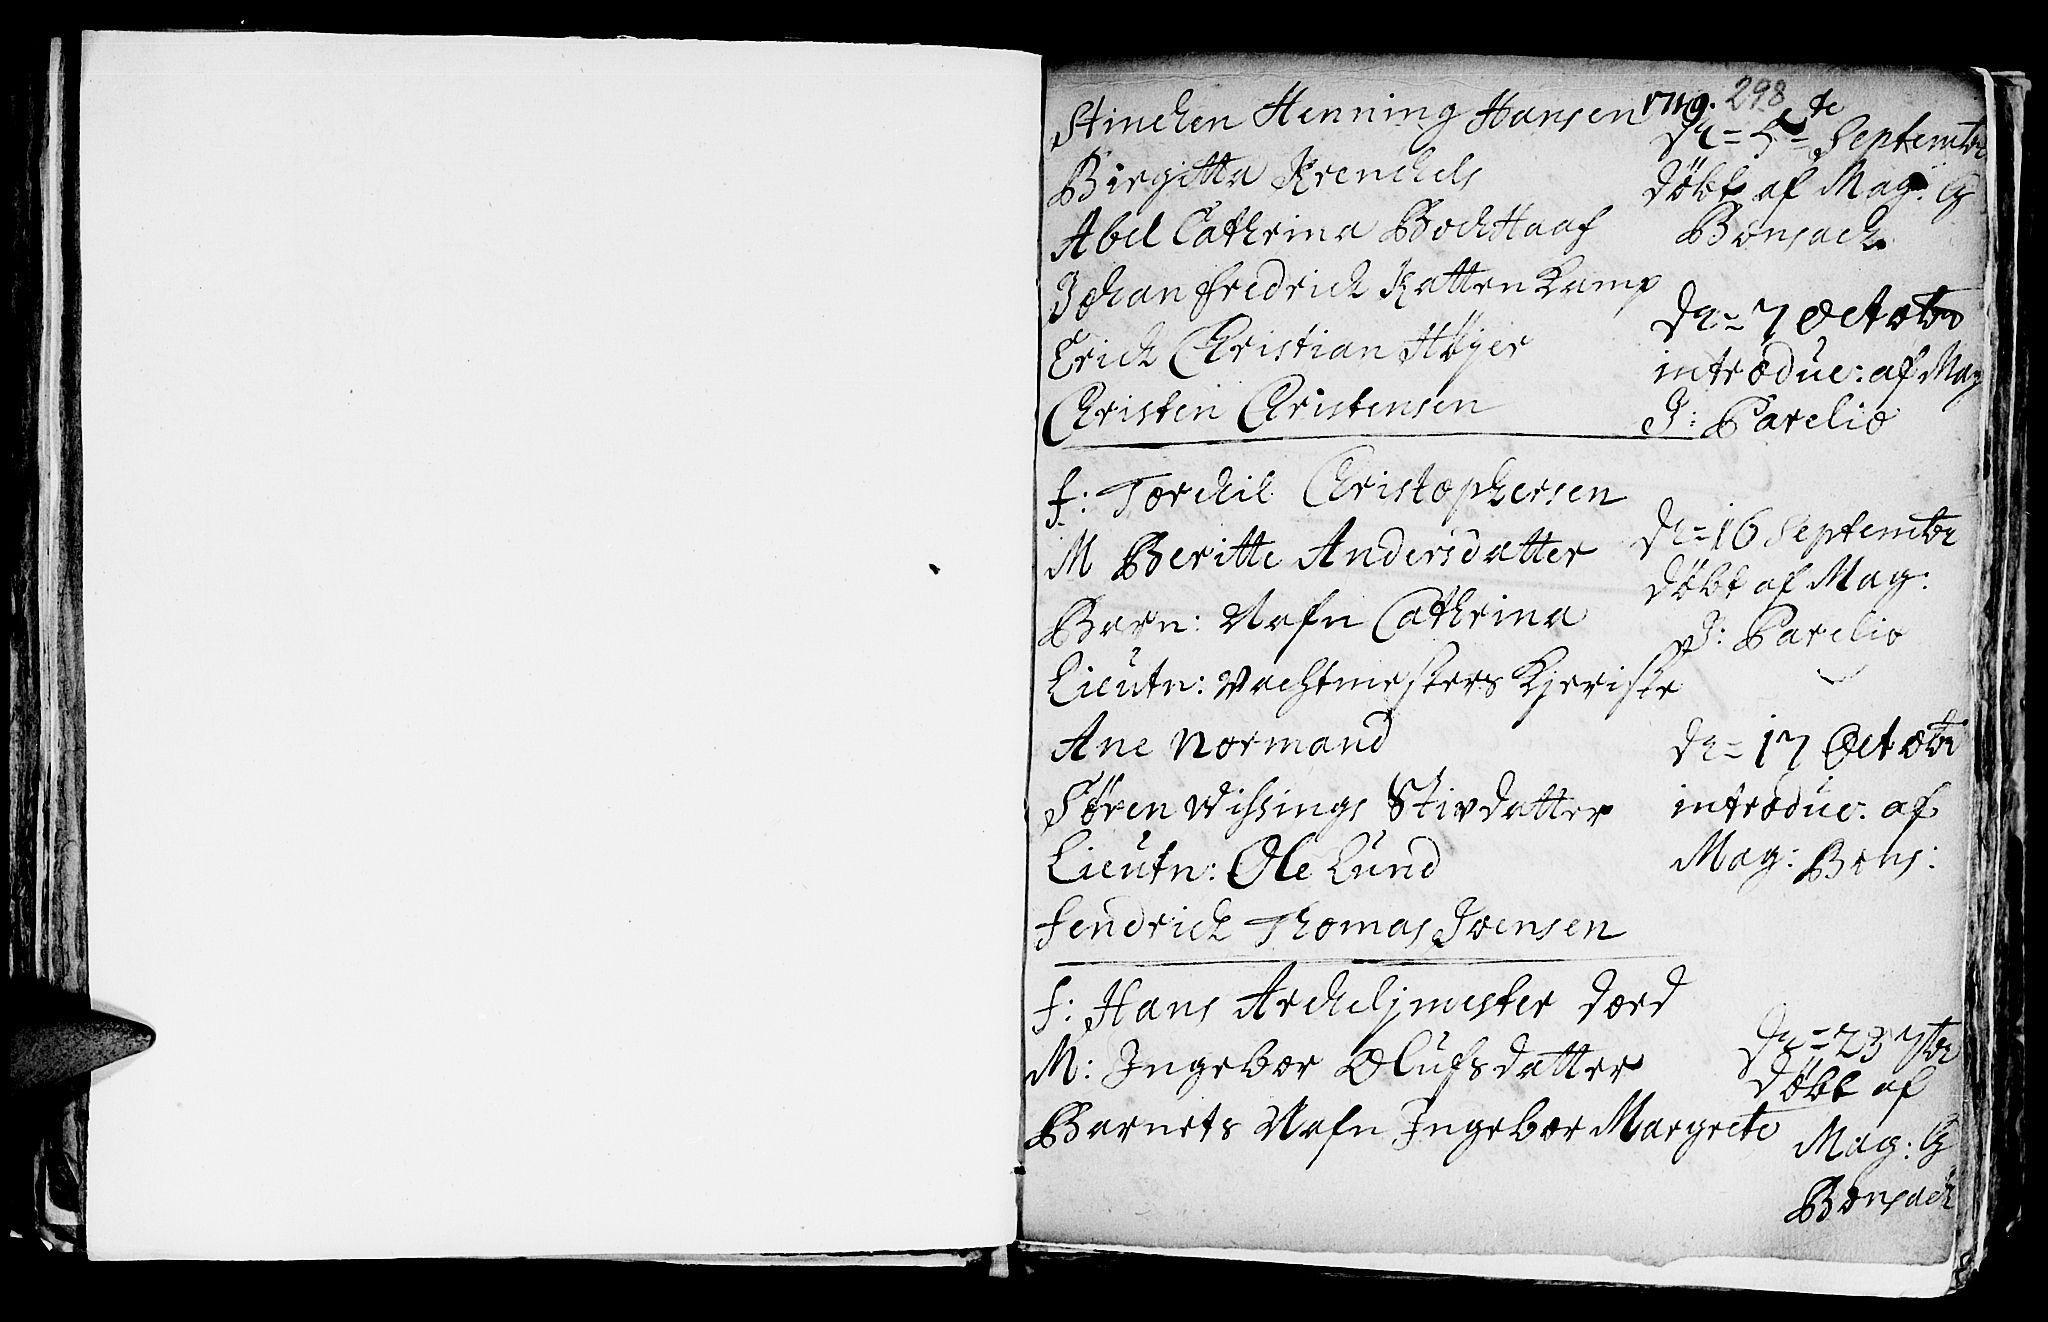 298
1719.
Stinchen Henning Hansen
Birgitta Krenchels
Abel Cathrina BockHaaf
Johan Fredrich Kattenkamp
Erich Christian Höjer
Christen Christensen
dn = 5te = Septembr
döbt af Mag: G
Bonsach
dn = 7 Octobr
introduc: af Mag
J: Parelio
f: Torchil Christophersen
M Beritte Andersdatter
Barn: Nafn Cathrina
Lieutn: Vachtmesters Kjeriste
Ane Normand
Sören Wissings Stivdatter
Lieutn: Ole Lund
Fendrich Thomas Ivensen
dn = 16 Septembr
döbt af Mag:
J: Parelio
dn = 17 Octobr
introduc: af
Mag: Bons:
f: Hans Archeljmester dord
M: Ingebor Olufsdatter
Barnets Nafn Ingebor Margrete
dn = 23 7br
döbt af
Mag: G
Bonsach